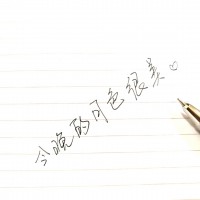 今晚的月色很美。